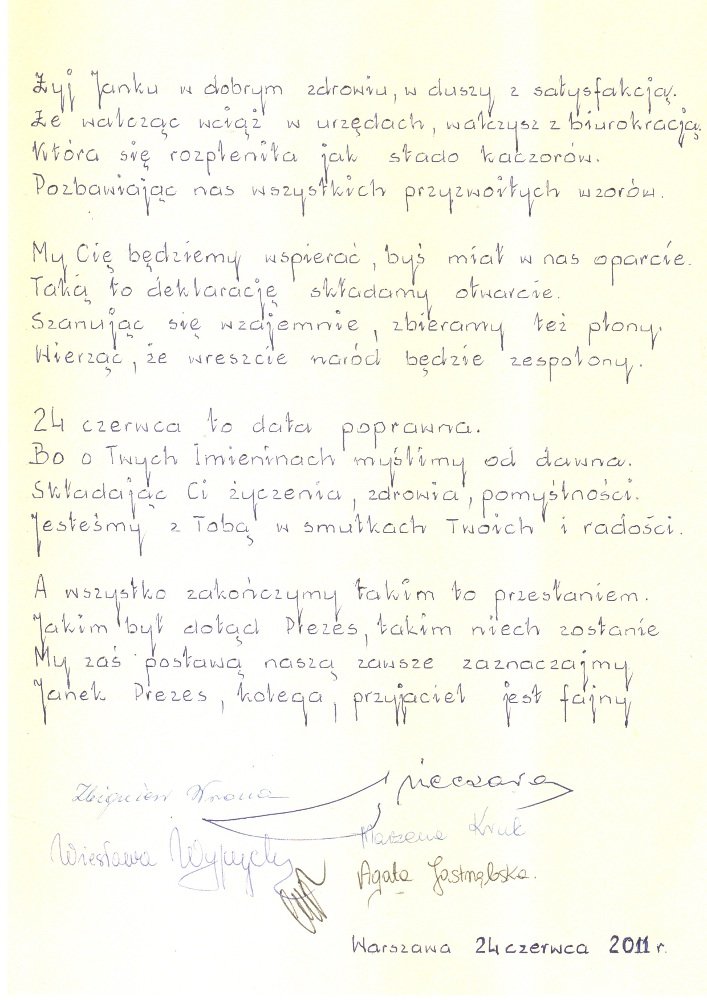 Żyj Janku w dobrym zdrowiu, w duszy z satysfakcją.
Że walcząc wciąż w urzędach, walczysz z biurokracją.
Która się rozpleniła jak stado kaczorów.
Pozbawiając nas wszystkich przyzwoitych wzorów.
My Cię będziemy wspierać, byś miał w nas oparcie.
Taką to deklarację składamy otwarcie.
Szanując się wzajemnie, zbieramy też plony.
Wierząc, że wreszcie naród będzie zespolony.
24 czerwca to data poprawna.
Bo o Twych Imieninach myślimy od dawna.
Składając Ci życzenia, zdrowia, pomyślności.
Jesteśmy z Tobą w smutkach Twoich i radości.
A wszystko zakończymy takim to przesłaniem.
Jakim był dotąd Prezes, takim niech zostanie
My zaś postawą naszą zawsze zaznaczajmy
Janek Prezes, kolega, przyjaciel jest fajny
Zbigniew Wrona
Wiesława
Marzena Kruk
Agata Jastrzębska.
Warszawa 24 czerwca 2011 r.